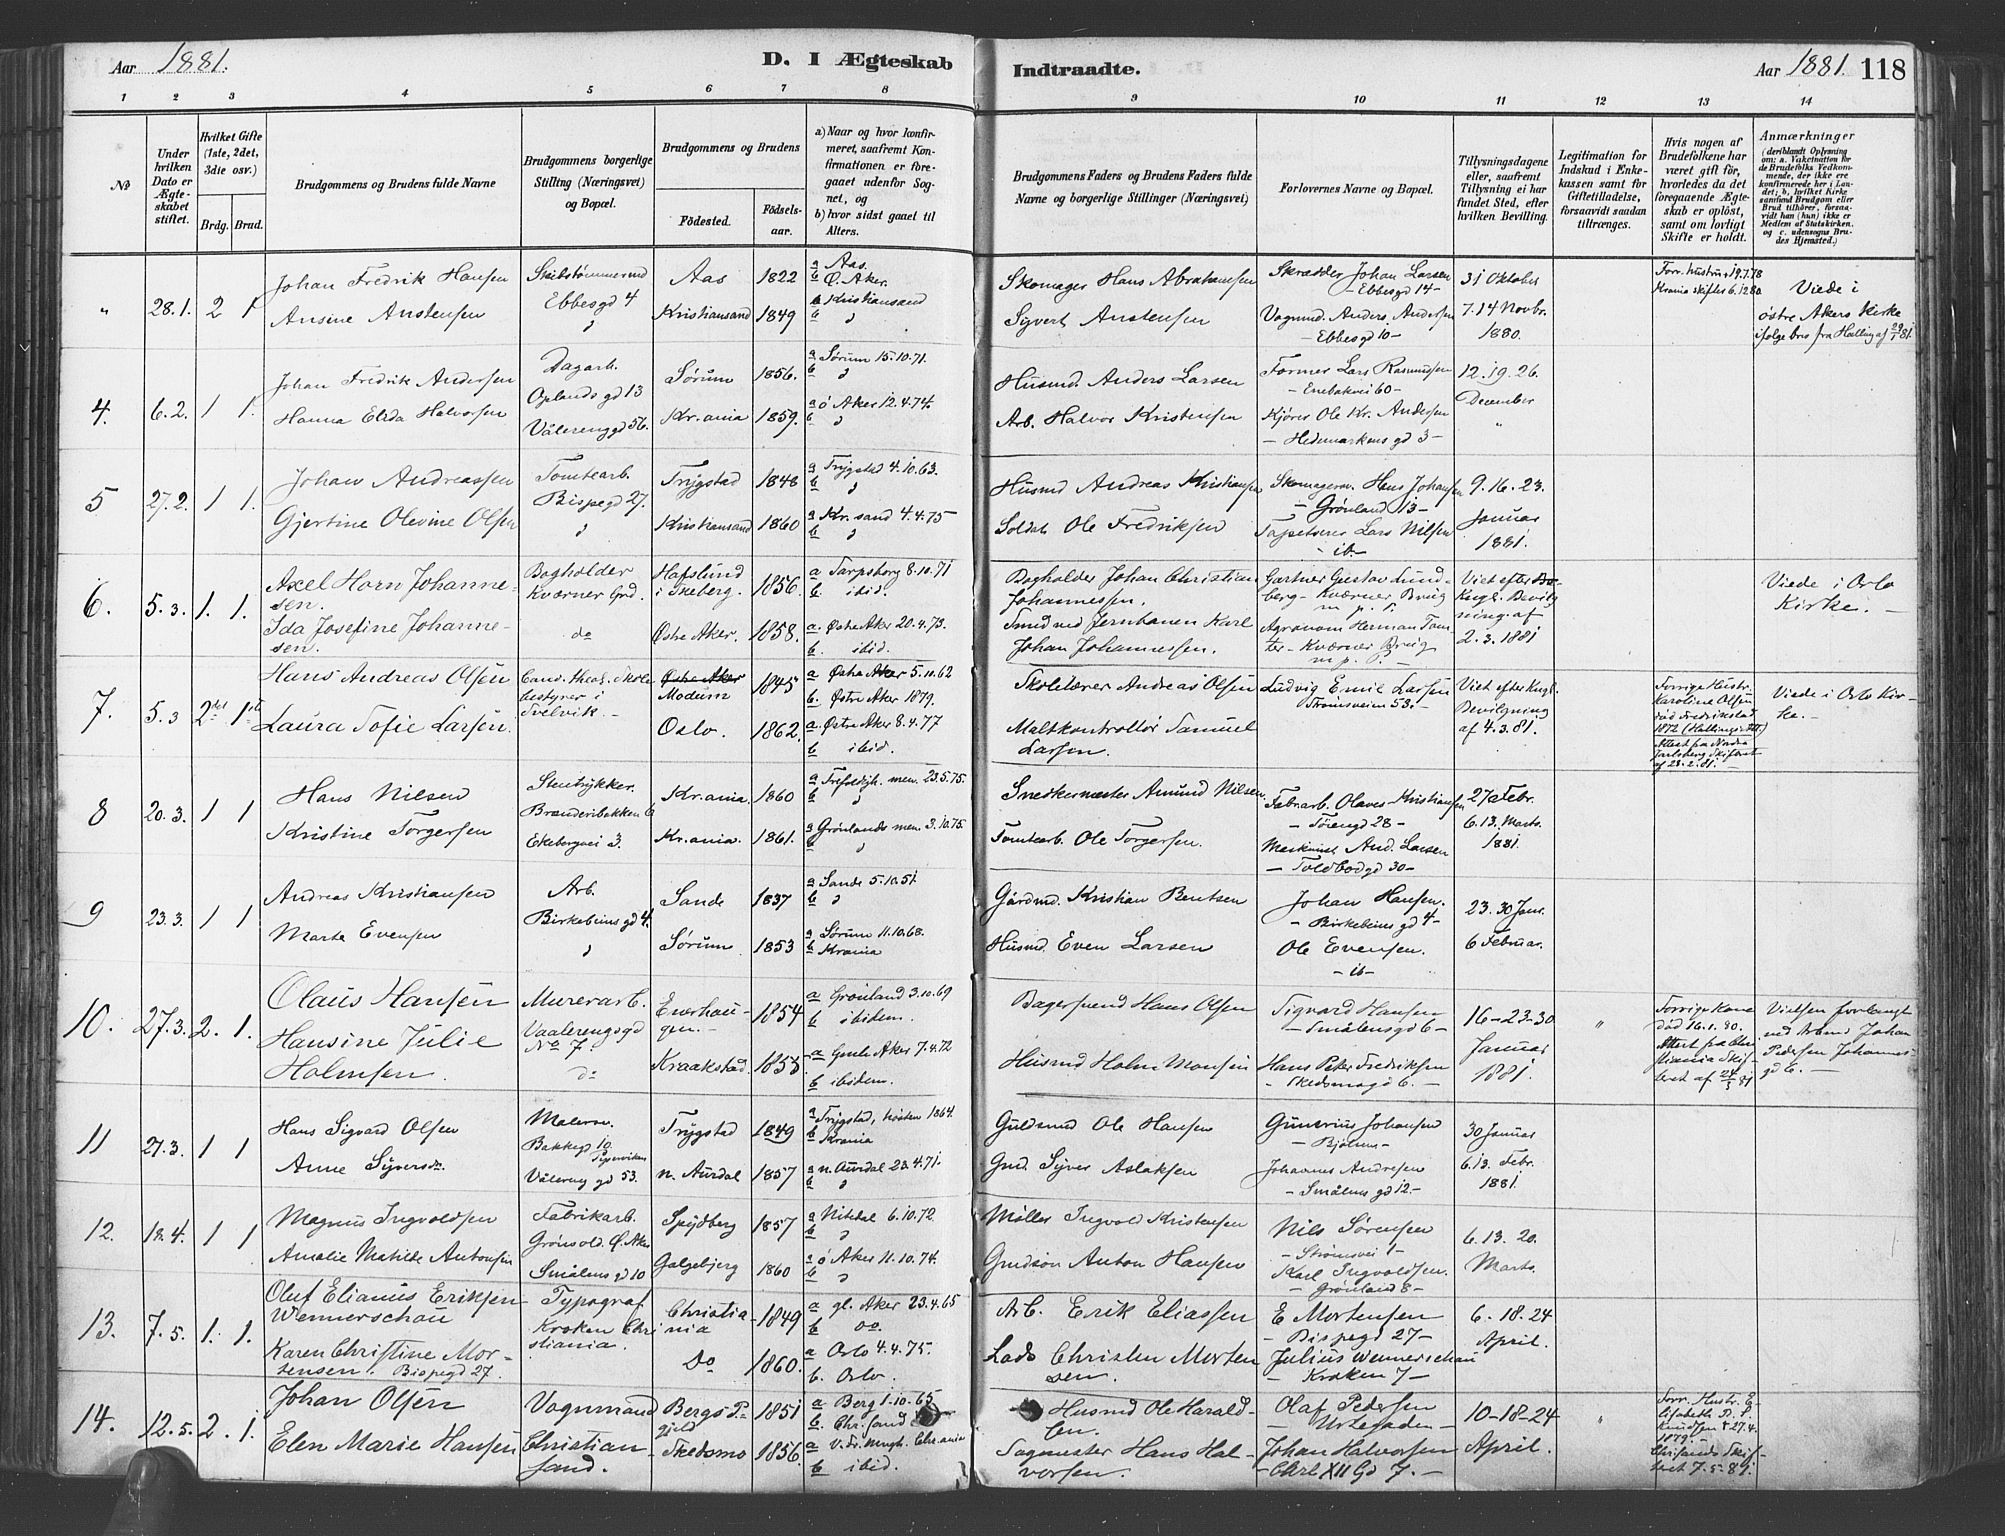 Aar 1881.
D. I Ægteskab
Indtraadte.
Aar 1881.
118
1 2 3 4 5 6 7 8
9 10 11 12 13 14
No
Under hvilken Dato er Ægteskabet stiftet.
Hvilket Gifte (1ste, 2det, 3die osv.)
Brdg. Brud.
Brudgommens og Brudens fulde Navne
Brudgommens borgerlige Stilling (Næringsvei) og Bopæl.
Brudgommens og Brudens
Fødested.
Fødselsaar.
a) Naar og hvor konfirmeret, saafremt Konfirmationen er foregaaet udenfor Sognet, og
b) hvor sidst gaaet til Alters.
Brudgommens Faders og Brudens Faders fulde Navne og borgerlige Stillinger (Næringsvei)
Forlovernes Navne og Bopæl.
Tillysningsdagene eller, saafremt Tillysning ei har fundet Sted, efter hvilken Bevilling.
Legitimation for Indskud i Enkekassen samt for Giftetilladelse, forsaavidt saadan tiltrænges.
Hvis nogen af Brudefolkene har været gift før, hvorledes da det foregaaende Ægteskab er opløst, samt om lovligt Skifte er holdt.
Anmærkninger (deriblandt Oplysning om: a. Vakcination for de Brudefolks Vedkommende, der ikke ere konfirmerede her i Landet; b, hvilket Kirkesamfund Brudgom eller Brud tilhører, forsaavidt han (hun) ikke er Medlem af Statskirken. og c. udensogns Brudes Hjemsted.)
" 28.1. 2 1 Johan Fredrik Hansen Skibstømmermd Aas 1822 a Aas. b Ø. Aker. Skomager Hans Abrahamsen Skrædder Johan Larsen 31 Oktober Forr. hustru † 19.7.78 Viede i
Ebbesgd 4 - Ebbesgd 14 - Krania skifter 6.12.80. østre Akers Kirke
Ansine Anstensen " Kristiansand 1849 a Kristiansand b " Syvert Anstensen Vognmd. Anders Andersen 7.14 Novbr. ifølge brev fra Halling af 29/1 81.
- Ebbesgd 10 - 1880.
4. 6.2. 1 1. Johan Fredrik Andersen Dagarb. Sørum 1856. a Sørum 15.10.71. b " Husmd. Anders Larsen Former Lars Rasmussen 12.19.26.
Oplandsgd 13 - Enebakvei 60 - December
Hanna Elida Halvorsen Vålerenggd 56. Kr.ania 1859. a ø Aker 12.4.74. b " Arb. Halvor Kristensen Kjører Ole Kr. Andersen "
- Hedemarkens gd 3 -
5 27.2. 1 1. Johan Andreassen Tomtearb. Trygstad 1848 a Trygstad 4.10.63. b " Husmd Andreas Kristiansen Skomagersv. Hans Johansen 9.16.23.
Bispegd 27. - Grønland 13 - Januar
Gjertine Olevine Olsen " Kristiansand 1860 a Kr.sand 4.4.75 b " Soldat Ole Fredriksen Tapetserer Lars Nilsen 1881.
- ib. -
6. 5.3. 1. 1. Axel Horn Johannesen. Bogholder Kværner Grd. Hafslund i Skeberg. 1856. a Sarpsborg 8.10.71 b ibid. Bogholder Johan Christian Johannessen. Gartner Gustav Lundberg - Kværner Brug m. p. T. Viet efter Kngl. Bevilgning af 2.3.1881 Viede i Oslo Kirke. -
Ida Josefine Johannesen. do Østre Aker. 1858. a. Østre Aker 20.4.73. b. ibid. Smed ved Jernbanen Karl Johan Johannessen. Agronom Herman Tomter - Kværner Brug m. p. P.
7. 5.3 2det 1ste Hans Andreas Olsen Cand. theol. Skolebestyrer i Svelvik. - Østre Aker Modum 1845 a Østre Aker 5.10.62 b. Østre Aker 1879. Skolelærer Andreas Olsen Ludvig Emil Larsen Strømsveien 53. - Viet efter Kngl. Bevilgning af 4.3.81. Forrige Hustru Karoline Olsen død Fredrikstad 1872 (Hallings Att.) Attest fra Nordre Jarlsberg Skifteret af 28.2.81. - Viede i Oslo Kirke. -
Laura Sofie Larsen. Oslo. 1862. a. Østre Aker 8.4.77 b ibid. Maltkontrollør Samuel Larsen.
8 20.3. 1 1 Hans Nilsen Stentrykker. Kr.ania. 1860 a Trefoldigh. men. 23.5.75. b " Snedkermester Amund Nilsen Fabr.arb. Olaves Kristiansen 27 Febr.
Branderibakken 6 - Tøiengd 28 - 6.13. Marts.
Kristine Torgersen Ekebergvei 3. Kr.ania. 1861. a Grønlands men. 3.10.75. b " Tomtearb. Ole Torgersen. Maskinist And. Larsen 1881.
- Toldbodgd 30 -
9 23.3 1 1 Andreas Kristiansen Arb. Sande 1837 a Sande 5.10.51. b " Gårdmd. Kristian Bentsen Johan Hansen. 23.30 Jan.
Birkebeins gd 4. - Birkebeins gd 4 -
Marte Evensen " Sørum 1853 a Sørum 11.10.68. b Krania Husmd. Even Larsen Ole Evensen. 6 Februar.
- ib -
10. 27.3. 2. 1. Olaus Hansen Murerarb. Vaalerengsgd No 7. Enerhaugen. - 1854 a Grønland 3.10.69 b ibidem. Bagersvend Hans Olsen Sigvard Hansen - Smålensgd 6 - 16-23-30 " Forrige Kone død 16.1.80. Attest fra Christiania Skifteret af 24/3 81 Vielsen forlangt ved Brud Johan Pedersen Johannesgd 6. -
Hansine Julie Holmsen. do Kraakstad 1855 a Gamle Aker 7.4.72 b ibidem. Husmd Holm Monsen Hans Peter Fredriksen - Skedsmogd 6. - Januar 1881.
11 27.3. 1 1 Hans Sigvard Olsen Malersv. Trygstad 1849 a Trygstad, høsten 1864. b Krania Guldsmd Ole Hansen Gunerius Johansen 30 Januar
Bakkegd 10. Pipervviken - Bjølsen -
Anne Syversdr. Vålereng gd 53. n. Aurdal 1857 a n. Aurdal 23.4.71. b " Gmd. Syver Aslaksen Johannes Andresen 6.13. Febr.
- Smålens gd 12 - 1881.
12. 18.4. 1 1 Magnus Ingvoldsen Fabrikarb. Spydberg 1857 a Nitedal 6.10.72. b " Møller Ingvold Kristensen Nils Sørensen 6.13.20.
Grønvold. Ø. Aker - Strømsvei 1 -
Amalie Matilde Antonsen Smålens gd 10 Galgebjerg 1860 a ø Aker 11.10.74. b " Gmdsøn Anton Hansen Karl Ingvoldsen. Marts.
- Grønland 8 -
13. 7.5. 1. 1. Oluf Elianus Eriksen Wennerschau Typograf Kroken Christiania. Christiania 1849 a gl. Aker 23.4.65 b do. Arb. Erik Eliassen E Mortensen - Bispegd 27 - 6.18.24
Karen Christine Mortensen. Bispegd 27. Do 1860. a Oslo 4.4.75. b. Oslo. Lods Christen Mortensen. Julius Wennerschau - Kroken 7 - April.
14. 12.5. 2. 1. Johan Olsen Vognmand Bergs Pgjeld 1851 a Berg 1.10.65 b. Chr.sand Husmd Ole Haraldsen. Olaf Pedersen - Urtegaden - 10-18-24 " Forr. Hustr. Elisabeth P. S. Knudsen † 27.4.1879. Chr.sands Skifteret 7.5.81.
Elen Marie Hansen Christiansand. Skedsmo 1856. a V. Fr. Mngh. Chr.ania b ibid. Sagmester Hans Halvorsen. Johan Halvorsen - Chrl XII Gd 7. - April.